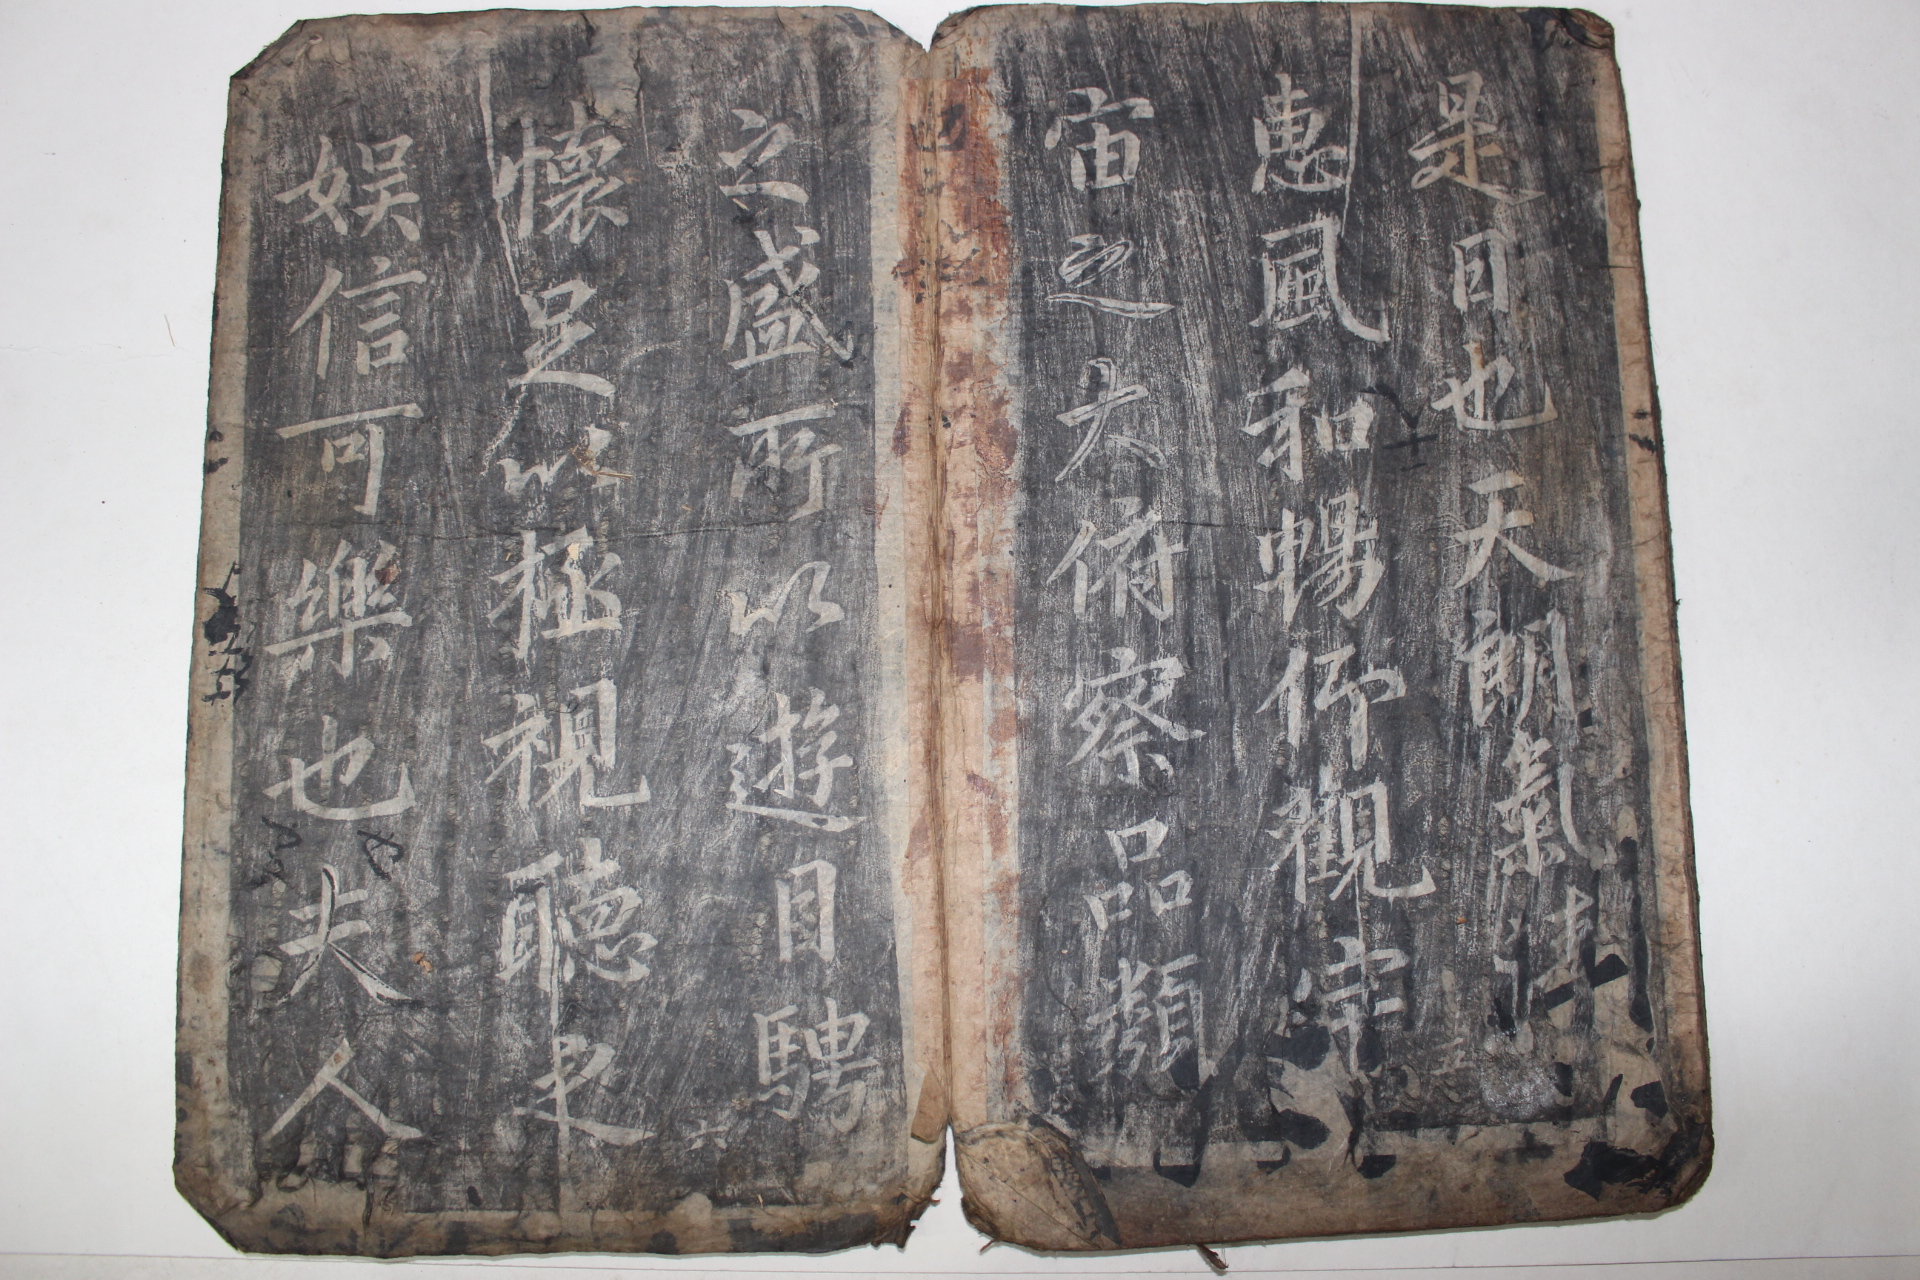 是日也天朗氣清
惠風和暢仰觀宇
宙之大俯察品類
五
之盛所以遊目騁
懷足以極視聽之
娱信可樂也夫人
六